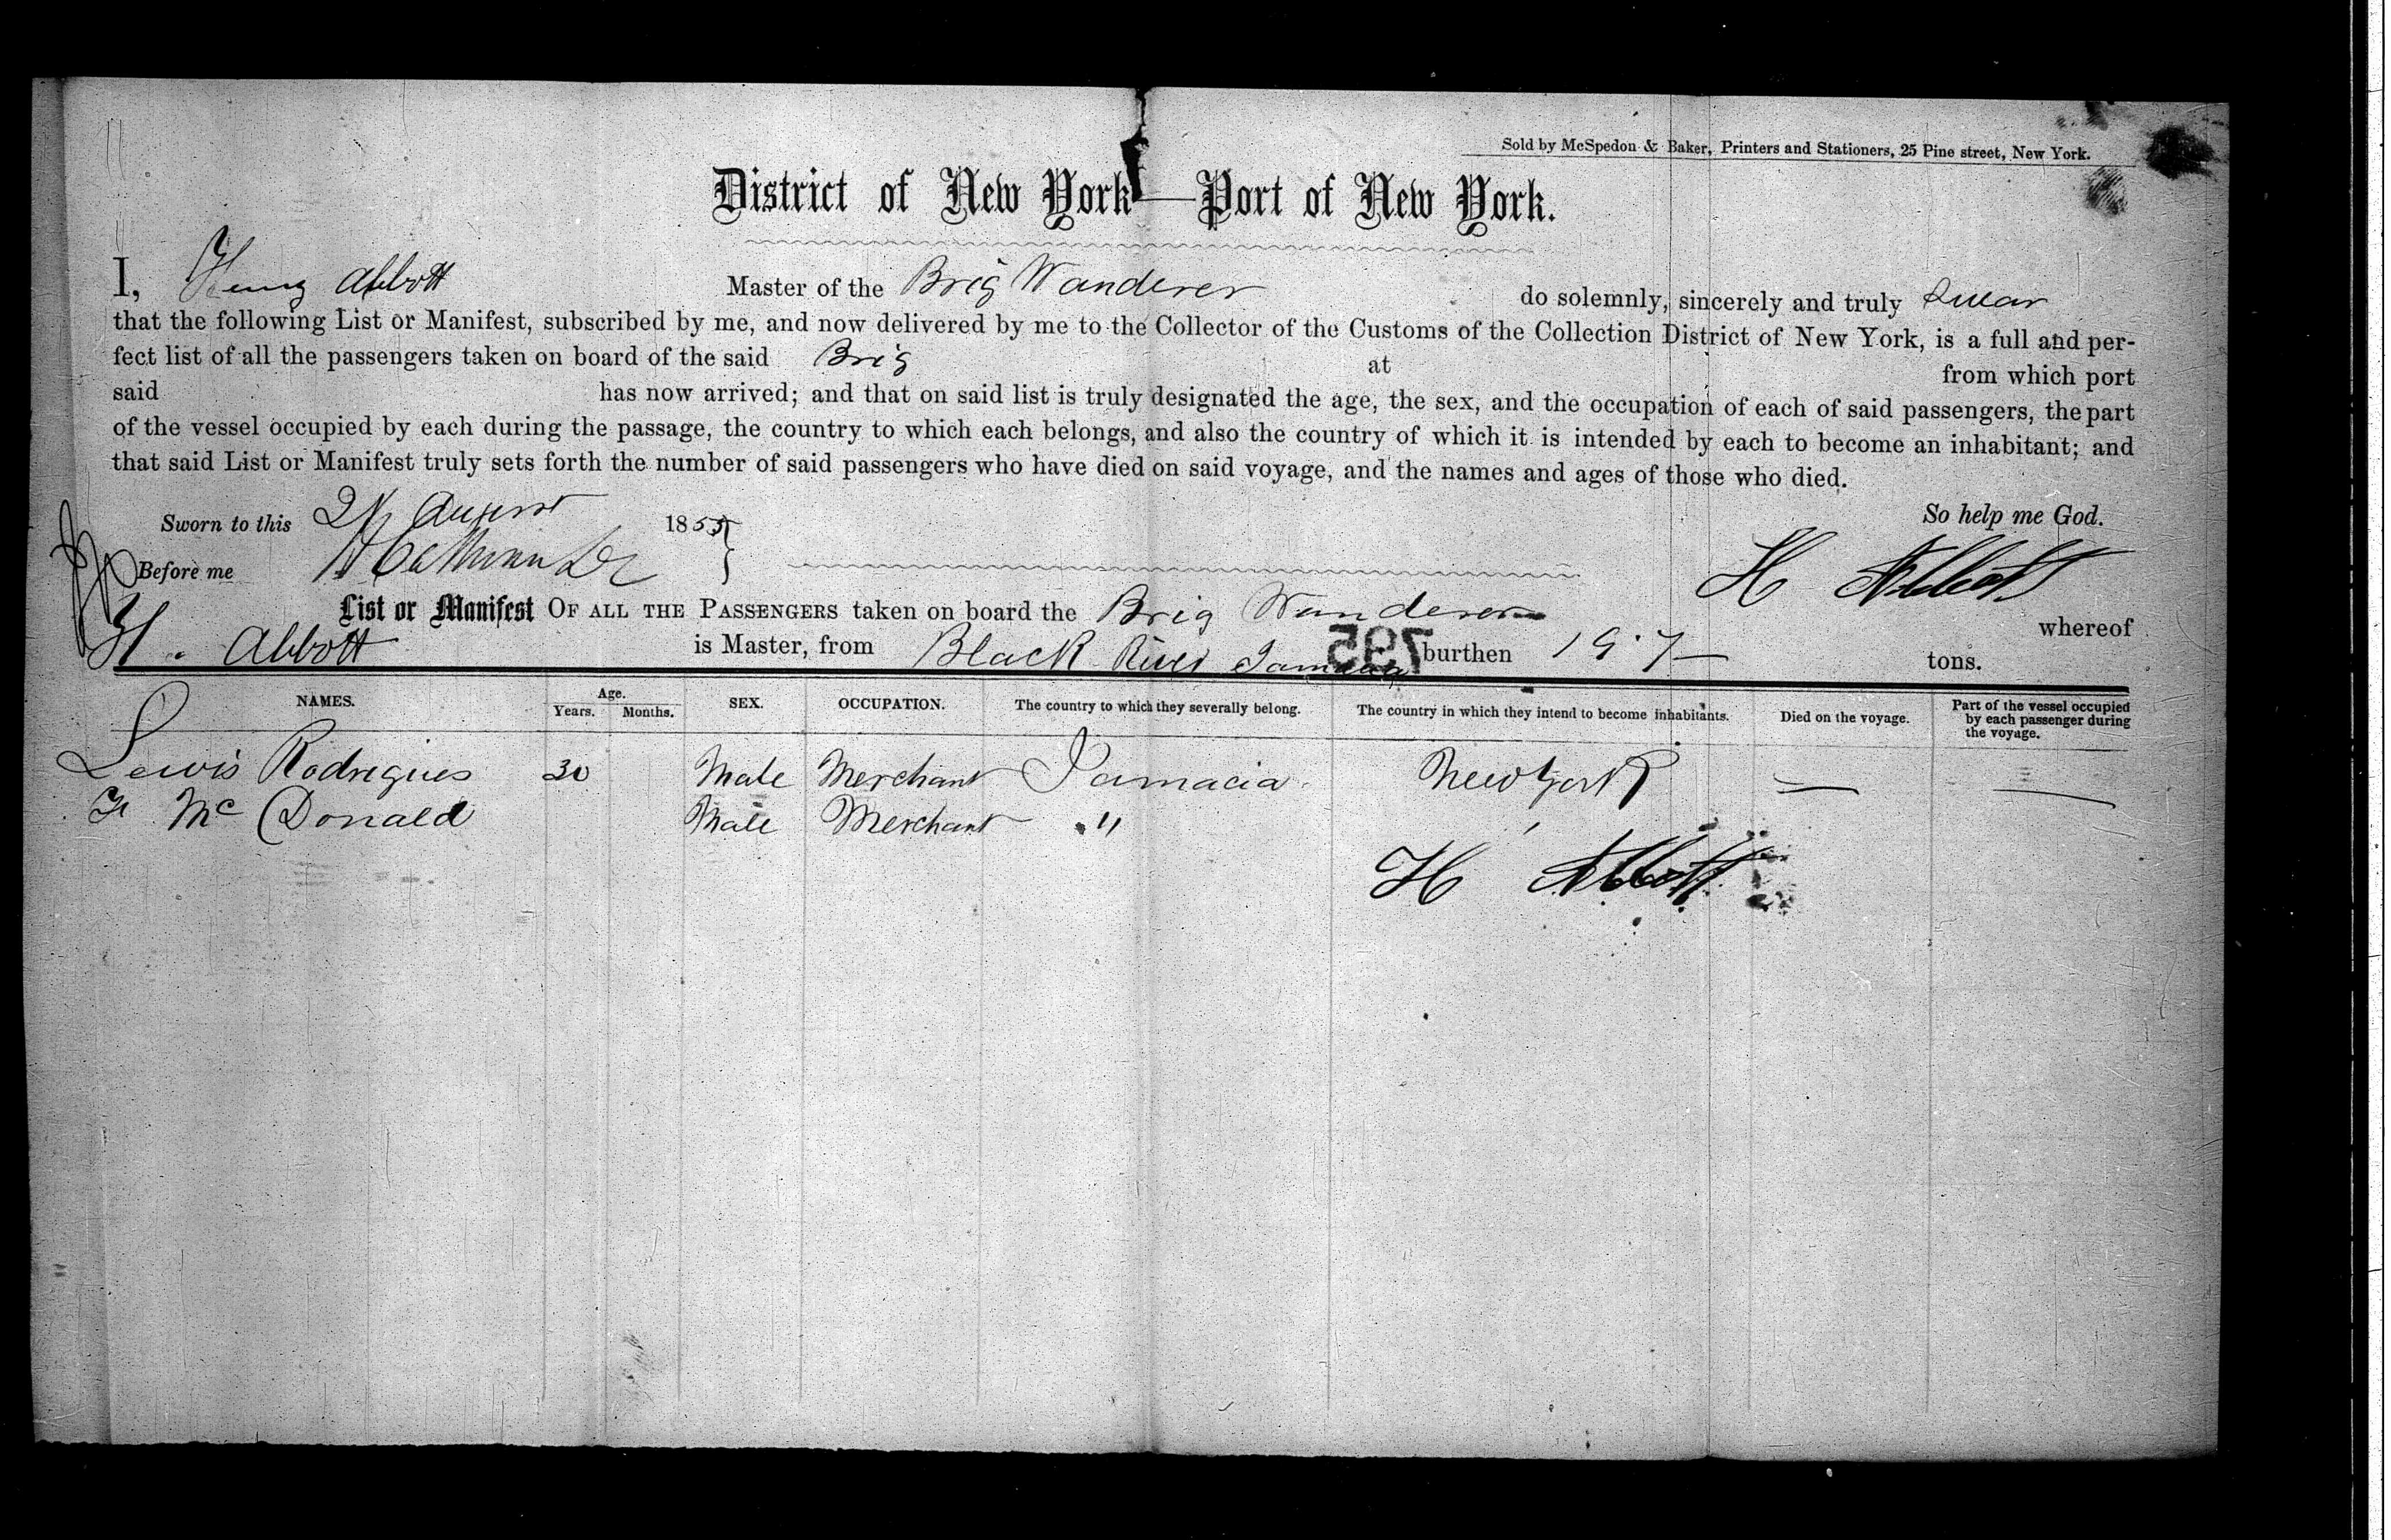 Sold by McSpedon & Baker, Printers and Stationers, 25 Pine street, New York.
District of New York—Port of New York.
I, Henry Abbott Master of the Brig Wanderer do solemnly, sincerely and truly swear
that the following List or Manifest, subscribed by me, and now delivered by me to the Collector of the Customs of the Collection District of New York, is a full and per-
fect list of all the passengers taken on board of the said Brig at from which port
said has now arrived; and that on said list is truly designated the age, the sex, and the occupation of each of said passengers, the part
of the vessel occupied by each during the passage, the country to which each belongs, and also the country of which it is intended by each to become an inhabitant; and
that said List or Manifest truly sets forth the number of said passengers who have died on said voyage, and the names and ages of those who died.
Sworn to this August 1855 So help me God.
Before me H Abbott
List or Manifest OF ALL THE PASSENGERS taken on board the Brig Wanderer whereof
H. Abbott is Master, from Black River Jamaica burthen 197 tons.
795
NAMES. Age. Years. Months. SEX. OCCUPATION. The country to which they severally belong. The country in which they intend to become inhabitants. Died on the voyage. Part of the vessel occupied by each passenger during the voyage.
Lewis Rodrigues 30 Male Merchant Jamacia New York — —
Mc Donald Male Merchant "
H Abbott